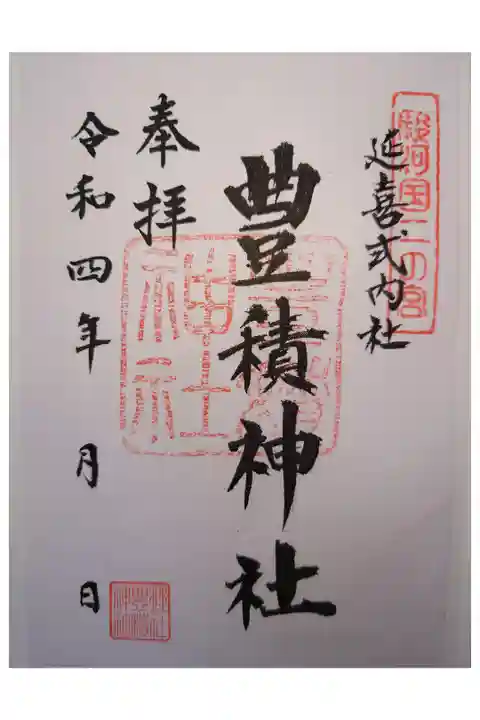 駿河国二の宮
延喜式内社
豊積神社
奉拝
令和四年 月 日